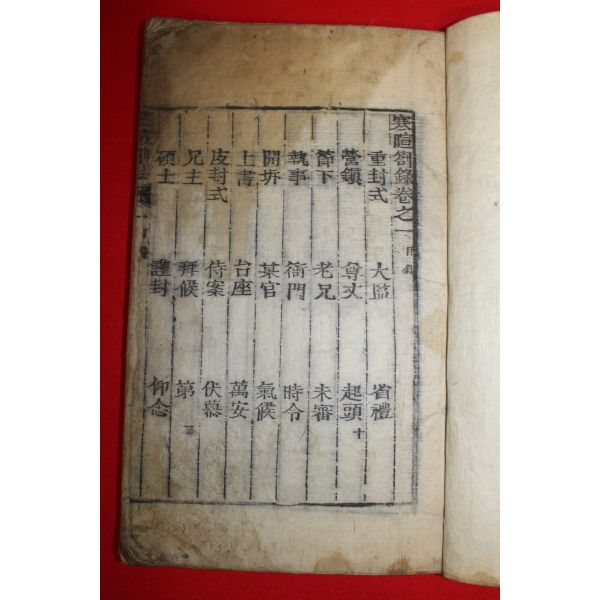 寒暄劄錄卷之一目錄
重封式 大監 省禮
營鎭 尊丈 起頭 十
節下 老兄 未審
執事 衙門 時令
開坼 某官 氣候
上書 台座 萬安
皮封式 侍案 伏慕
兄主 拜候 第
碩士 謹封 仰念